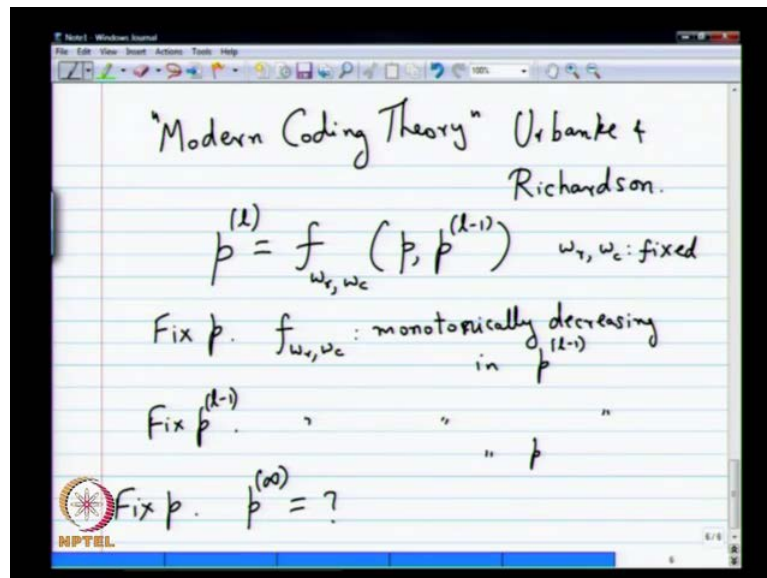 Note1 - Windows Journal
File Edit View Insert Actions Tools Help
100%
"Modern Coding Theory" Urbanke &
Richardson.
p^(l) = f_{w_r, w_c} (p, p^(l-1)) w_r, w_c : fixed
Fix p. f_{w_r, w_c} : monotonically decreasing
in p^(l-1)
Fix p^(l-1). " " "
" p
Fix p. p^(∞) = ?
NPTEL
6/6
6